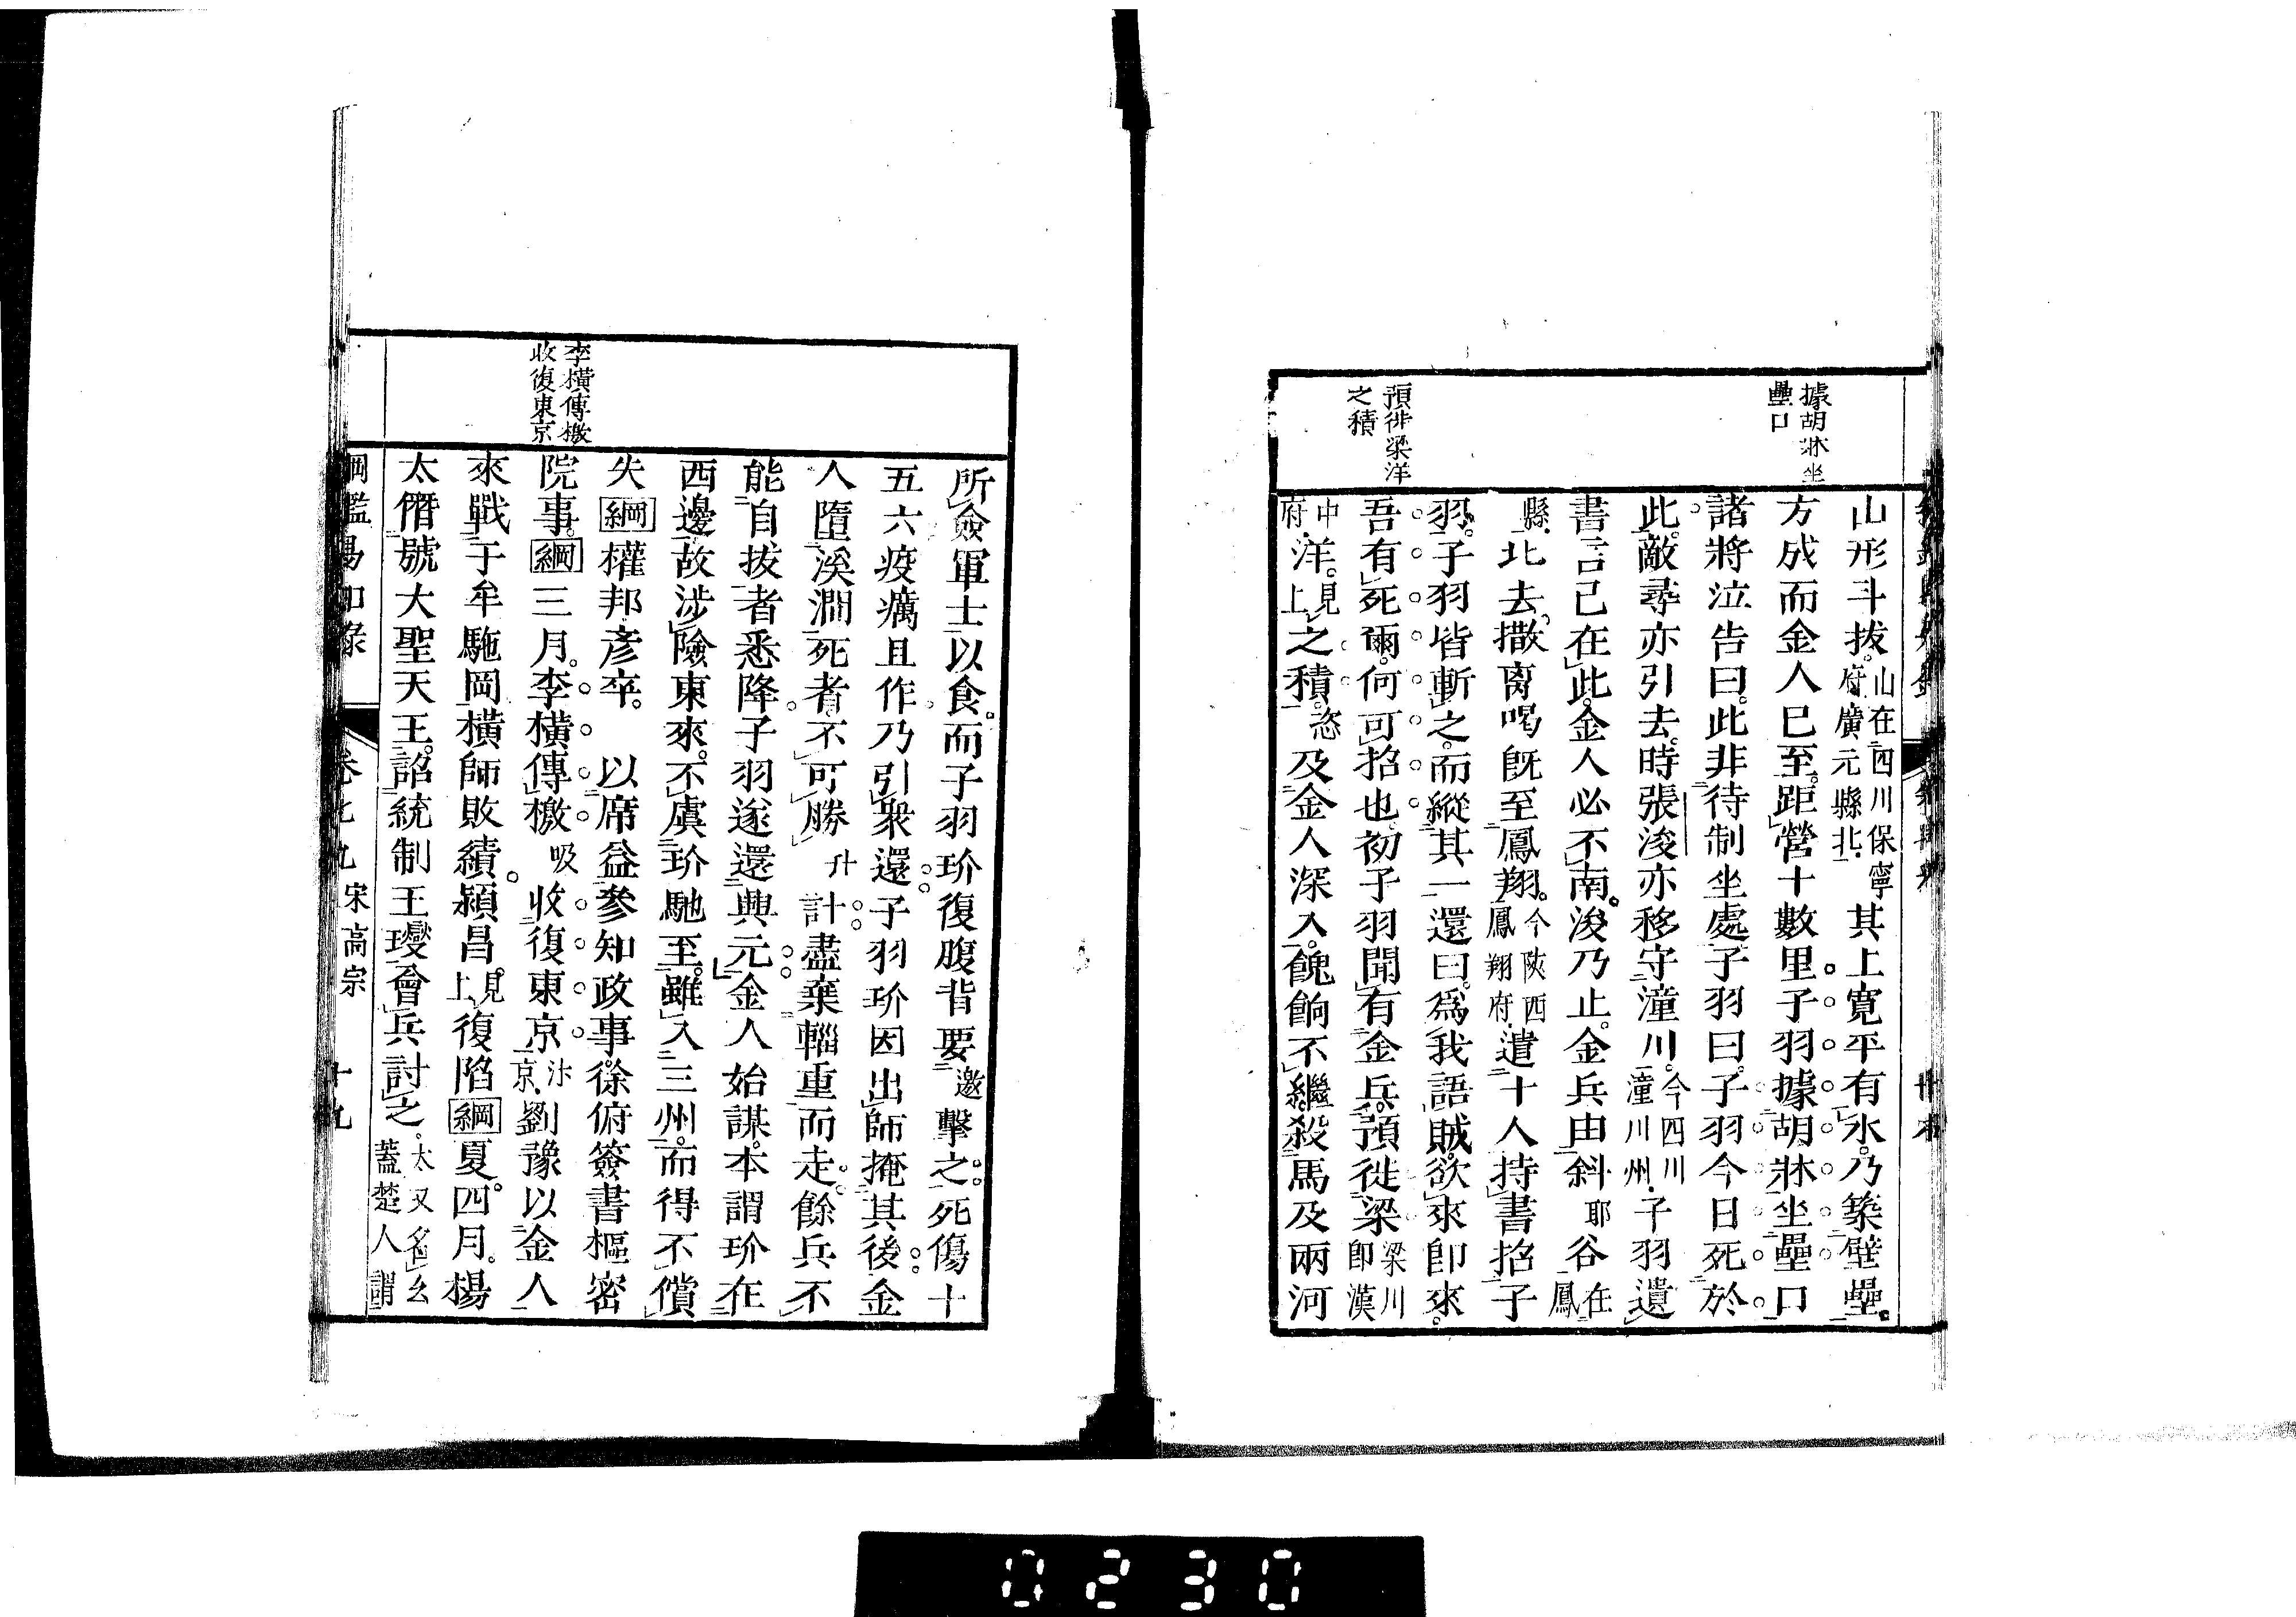 據胡牀坐
壘口
預徙梁洋
之積
山形斗拔。山在四川保寧府廣元縣北。其上寬平有水。乃築壁壘。
方成而金人已至。距營十數里。子羽據胡牀坐壘口
諸將泣告曰。此非待制坐處。子羽曰。子羽今日死於
此。敵尋亦引去。時張浚亦移守潼川。今四川潼川州。子羽遺
書言己在此。金人必不南。浚乃止。金兵由斜耶谷在鳳
縣。北去。撒离喝旣至鳳翔。今陝西鳳翔府。遣十人持書招子
羽。子羽皆斬之。而縱其一還曰。爲我語賊。欲來卽來。
吾有死爾。何可招也。初子羽聞有金兵。預徙梁梁川卽漢
中府。洋。見上。之積。恣及金人深入。餽餉不繼。殺馬及兩河
李橫傳檄
收復東京
所僉軍士以食。而子羽玠復腹背要邀擊之。死傷十
五六。疫癘且作。乃引衆還。子羽玠因出師掩其後。金
人墮溪澗死者。不可勝升計。盡棄輜重而走。餘兵不
能自拔者悉降。子羽遂還興元。金人始謀。本謂玠在
西邊。故涉險東來。不虞玠馳至。雖入三州。而得不償
失綱權邦彥卒。以席益參知政事。徐俯簽書樞密
院事。綱三月。李橫傳檄吸收復東京。汴京。劉豫以金人
來戰于牟駞岡。橫師敗績。潁昌。見上。復陷綱夏。四月。楊
太僭號大聖天王。詔統制王𤫉會兵討之。太又名幺蓋楚人謂
綱鑑易知錄 卷七九 宋高宗 十九